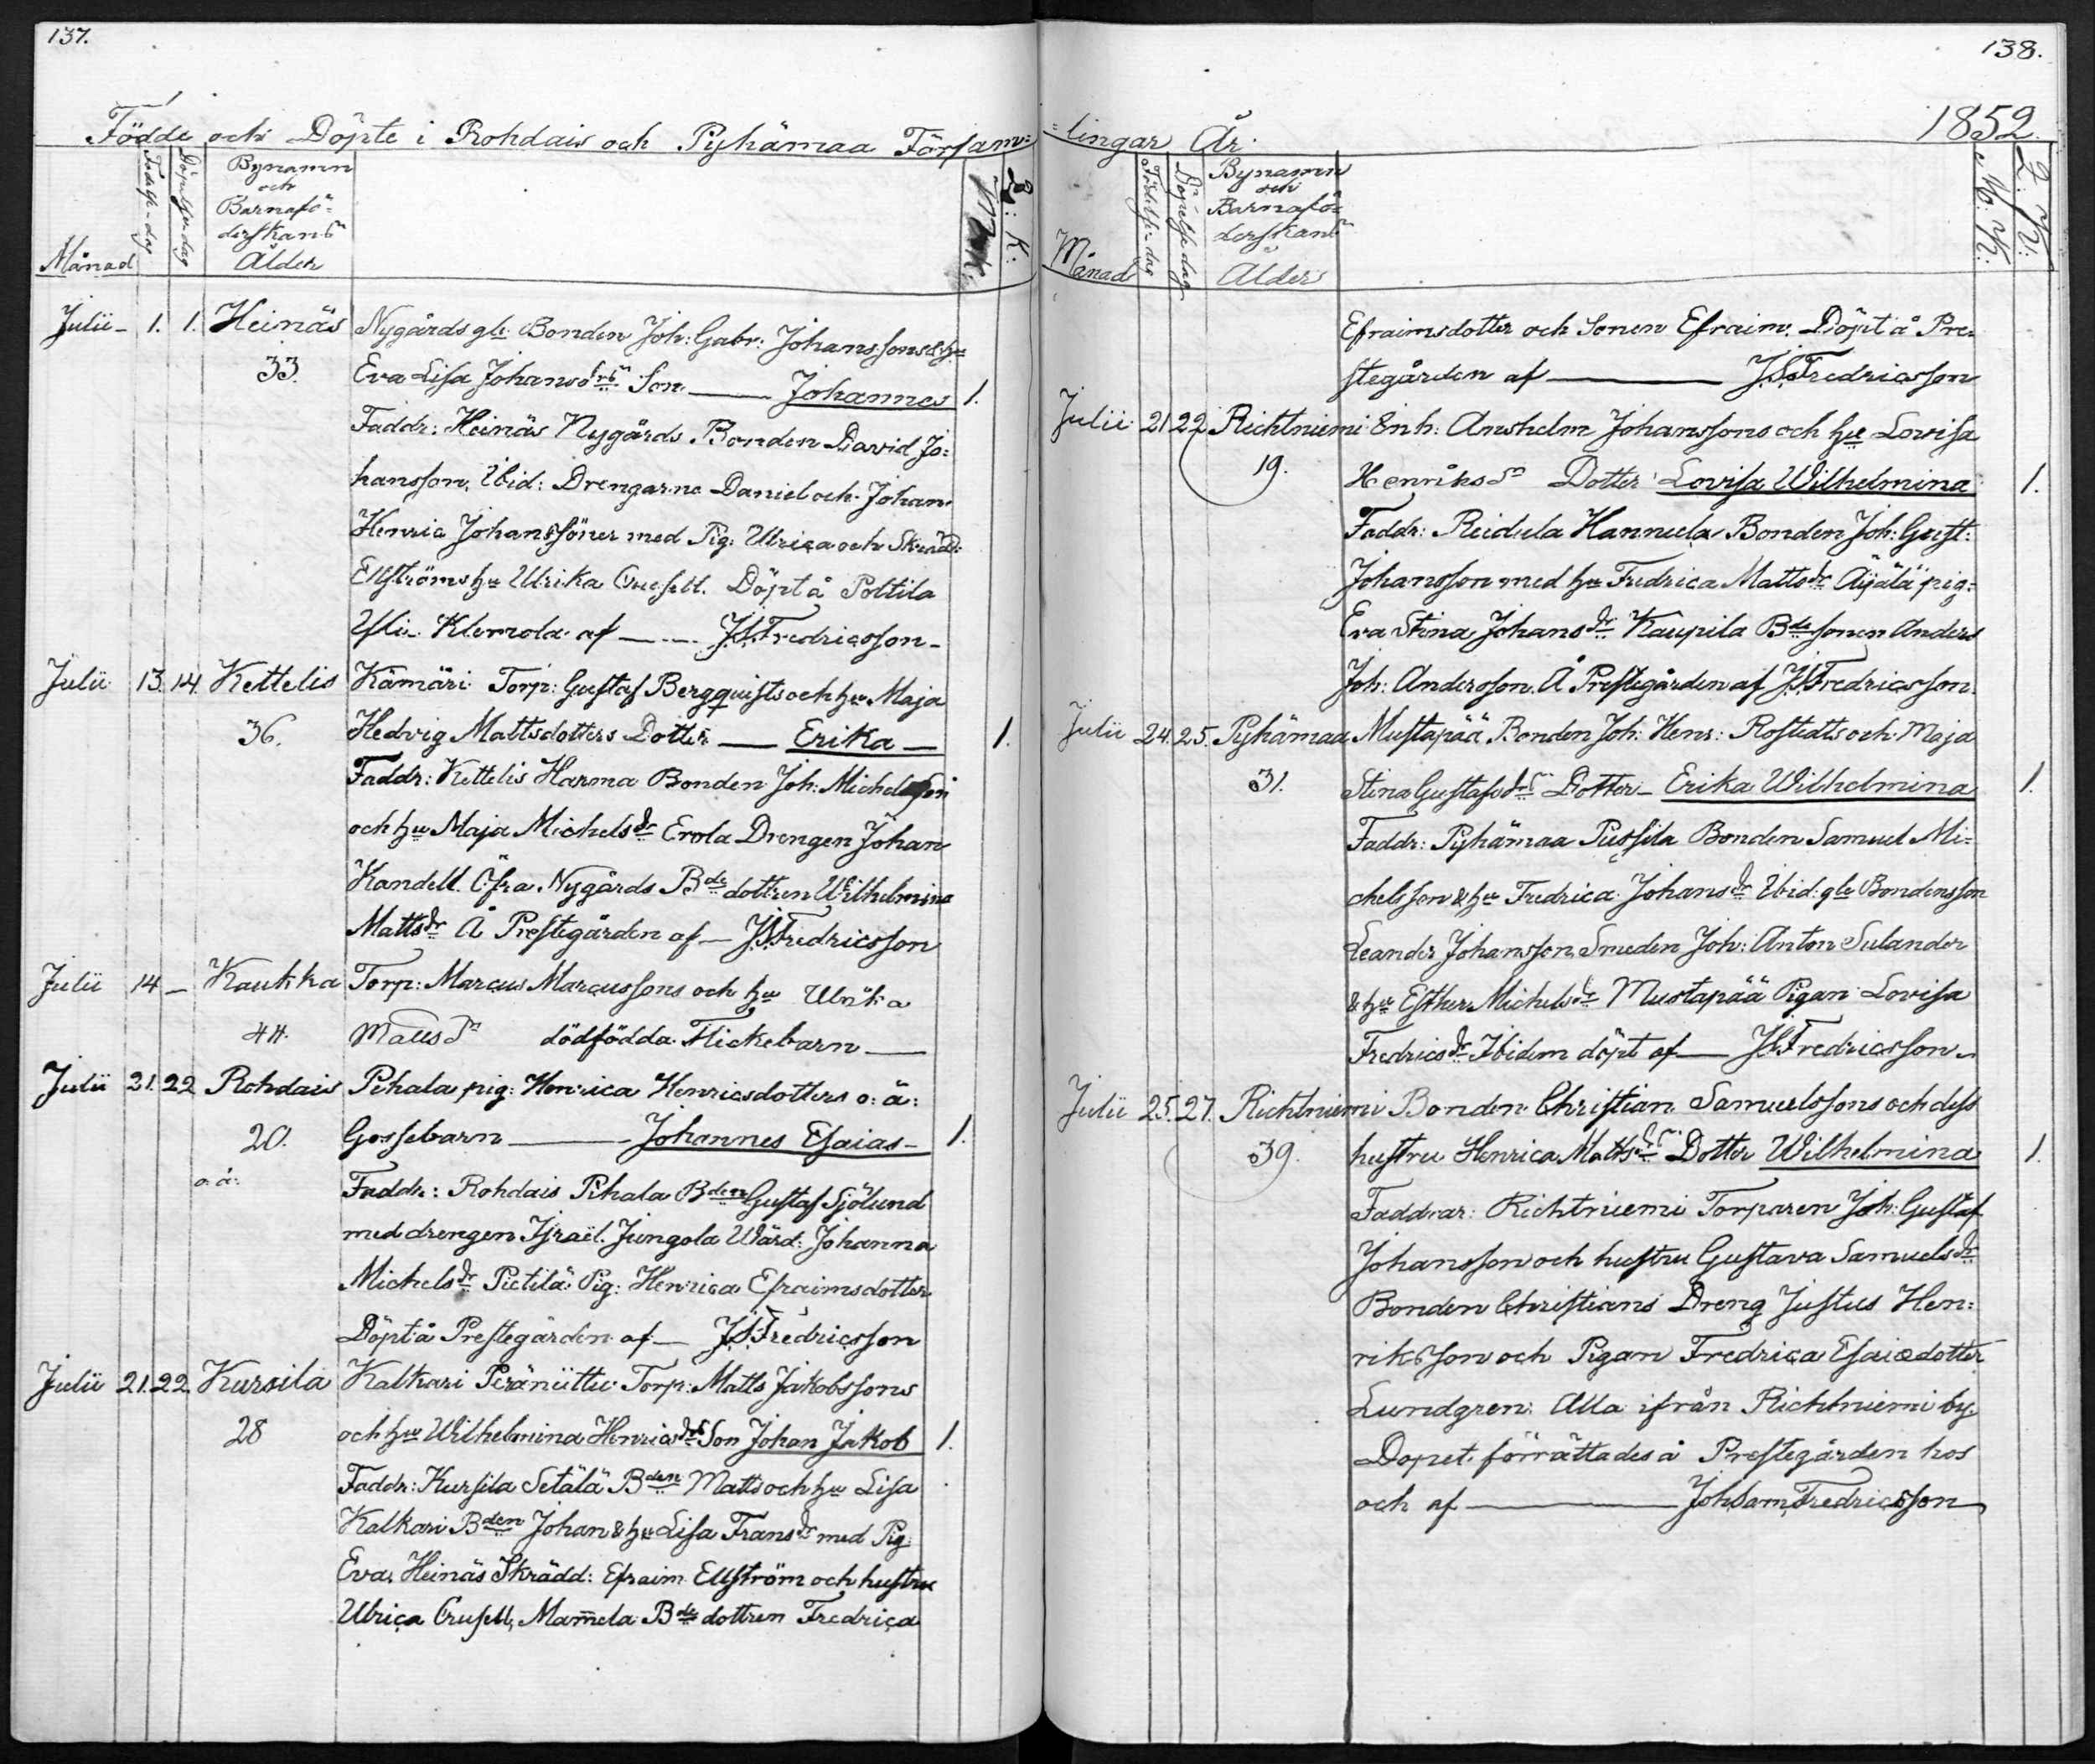 137.
Födde och Döpte i Rohdais och Pyhämaa Försam=
Månad
Födelse-dag
Döpelse dag
Bynamn
och
Barnafö-
derskans
Ålder
M: K:
Q: K:
Julii - 1. 1. Heinäs Nygårds gle Bonden Joh: Gabr: Johanssons & hu
33. Eva Lisa Johansdrs Son — Johannes 1.
Faddr: Heinäs Nygårds Bonden David Jo=
hansson, Ibid: Drengarne Daniel och Johan
Henric Johanssöner med Pig: Ulrica och Skrädd:
Ellströms hu Ulrika Crusell. Döpt å Poltila
Ylii Klemola af — J.S.Fredricsson -
Julii 13. 14. Kettelis Kämäri Torp: Gustaf Bergquists och hu Maja
36. Hedvig Mattsdotters Dotter — Erika — 1.
Faddr: Kettelis Harma Bonden Joh: Michelsson
och hu Maja Michelsdr Erola Drengen Johan
Kandell. Öfra Nygårds Bde dottren Wilhelmina
Mattsdr Å Prestegården af — J.S.Fredricsson
Julii 14 - Kaukka Torp: Marcus Marcussons och hu Ulrika
44. Mattsdr dödfödda Flickebarn —
Julii 21. 22 Rohdais Pihala pig: Henrica Henricsdotters o: ä:
20. Gossebarn — Johannes Esaias - 1.
o. ä:
Faddr: Rohdais Pihala Bden Gustaf Sjölund
med drengen Israël. Jungola Wärd: Johanna
Michelsdr Pietilä Pig: Henrica Efraimsdotter
Döpt å Prestegården af — J.S.Fredricsson
Julii 21. 22. Kursila Kalkari Peräniittu Torp: Matts Jakobssons
28 och hu Wilhelmina Henricsdrs Son Johan Jakob 1.
Faddr: Kursila Setälä Bden Matts och hu Lisa
Kalkari Bden Johan & hu Lisa Fransdr med Pig:
Eva, Heinäs Skrädd: Efraim Ellström och hustru
Ulrica Crusell, Mamela Bde dottren Fredrica
138.
=lingar År. 1852.
Månad
Födelse dag
Döpelse dag
Bynamn
och
Barnafö=
derskans
Ålder
M: K:
Q: K:
Efraimsdotter och Sonen Efraim. Döpt å Pre=
stegården af — J.S.Fredricsson
Julii 21 22 Richtniemi Inh: Anshelm Johanssons och hu Lovisa
19. Henriksdr Dotter Lovisa Wilhelmina 1.
Faddr: Reidula Hannula Bonden Joh: Gust:
Johansson med hu Fredrica Mattsdr Äijälä pig:
Eva Stina Johansdr Kaupila Bde sonen Anders
Joh: Andersson. Å Prestegården af J.S.Fredricsson.
Julii 24. 25. Pyhämaa Mustapää Bonden Joh: Henr: Rostedts och Maja
31. Stina Gustafsdrs Dotter - Erika Wilhelmina 1.
Faddr: Pyhämaa Pussila Bonden Samuel Mi=
chelsson & hu Fredrica Johansdr Ibid: gle Bondensson
Leander Johansson, Smeden Joh: Anton Sulander
& hu Esther Michelsdr Mustapää Pigan Lovisa
Fredricsdr Ibidem döpt af — J.S.Fredricsson -
Julii 25. 27. Richtniemi Bonden Christian Samuelssons och dess
39. hustru Henrica Mattsdrs Dotter Wilhelmina 1.
Faddrar: Richtniemi Torparen Joh: Gustaf
Johansson och hustru Gustava Samuelsdr
Bonden Christians Dreng Justus Hen=
riksson och Pigan Fredrica Esaiædotter
Lundgren. Alla ifrån Richtniemi by.
Dopet förrättades å Prestegården hos
och af — Joh.Sam.Fredricsson